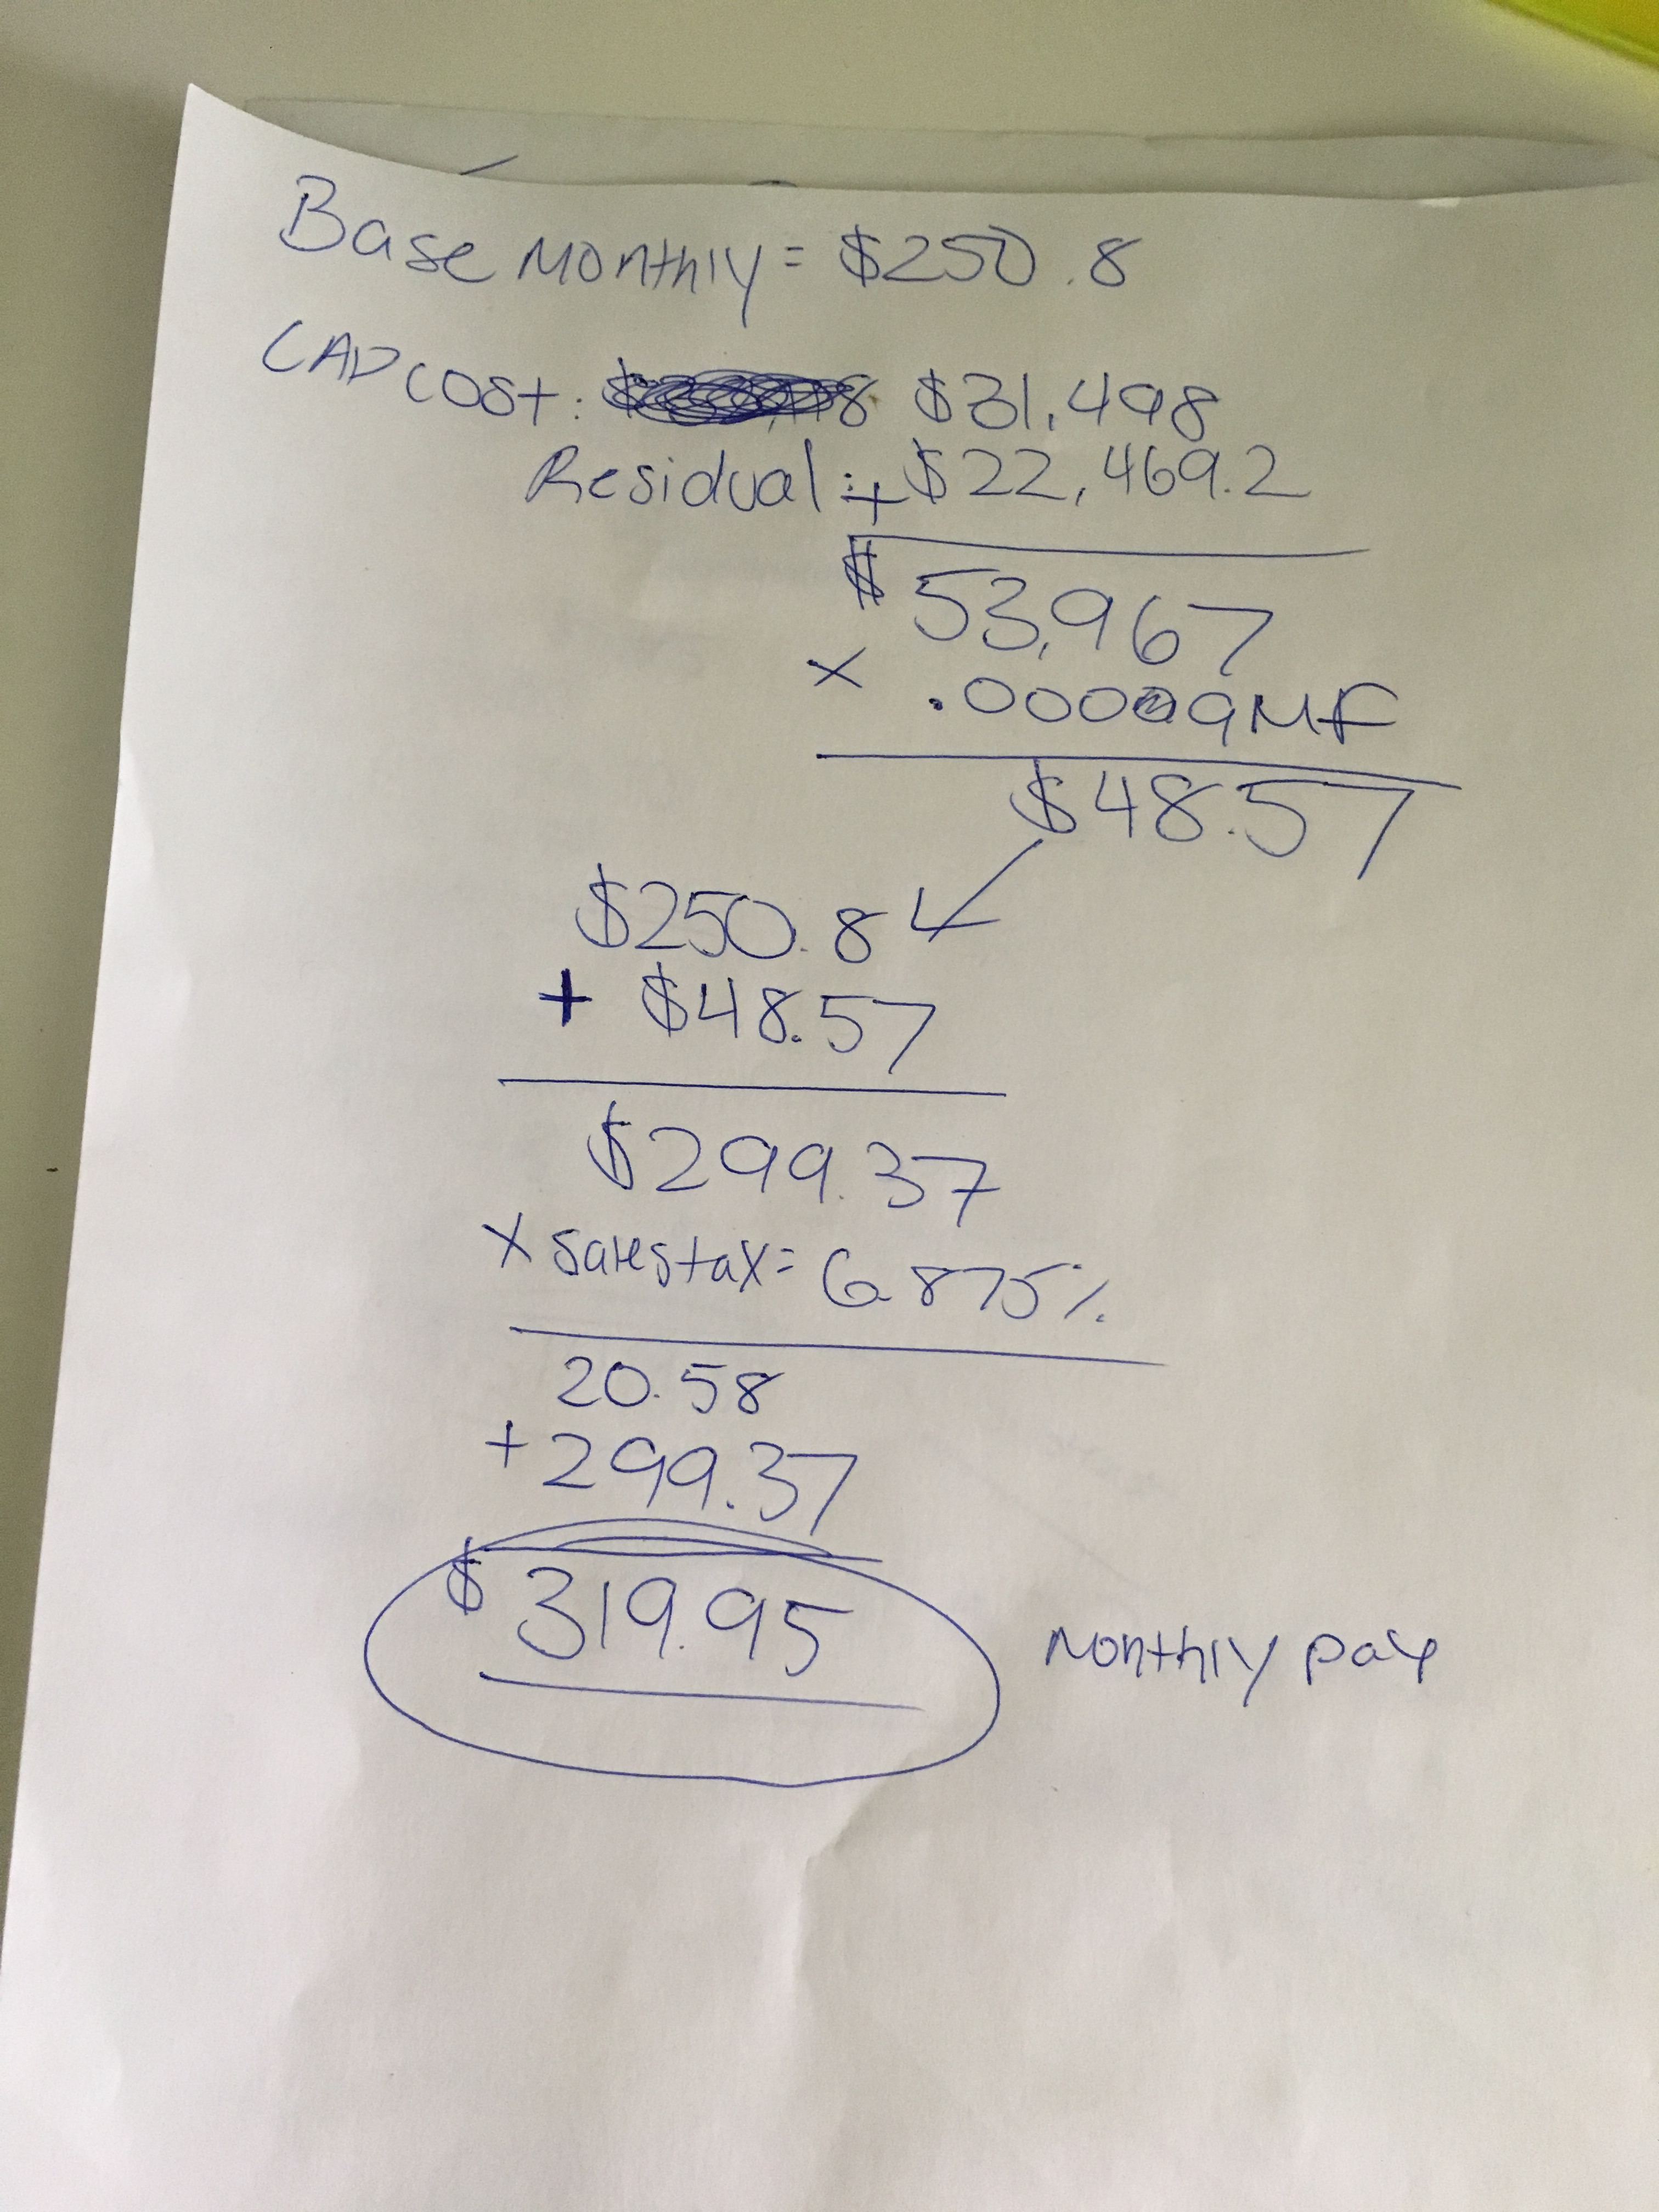 Base Monthly = $250.8
CAP COST: $31,498
Residual: + $22,469.2
$ 53,967
X .00009 MF
$48.57
$250.8
+ $48.57
$299.37
X Sales tax = 6.875%
20.58
+ 299.37
$ 319.95
Monthly pay